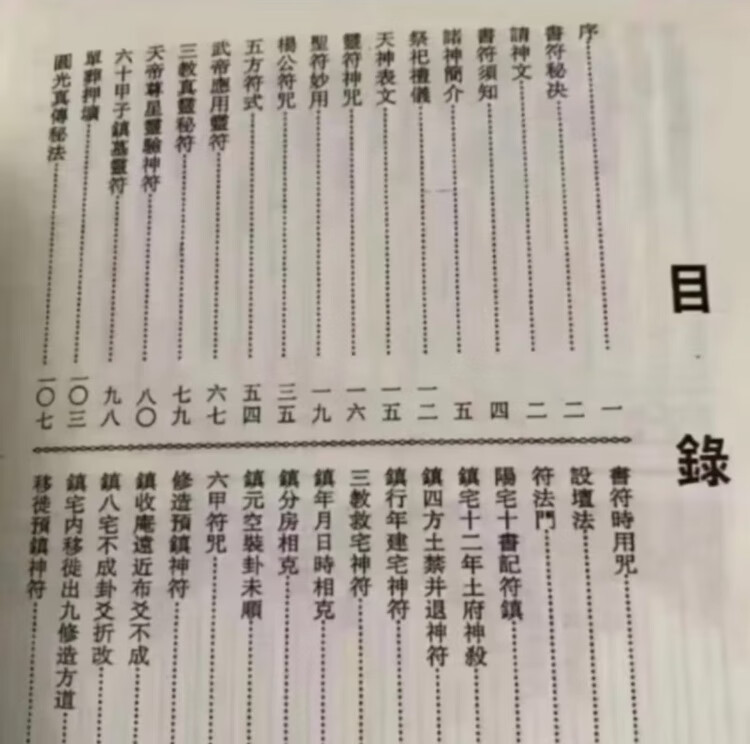 目錄
序 一
書符秘決 二
請神文 二
書符須知 四
諸神簡介 五
祭祀禮儀 一二
天神表文 一五
靈符神咒 一六
聖符妙用 一九
楊公符咒 三五
五方符式 五四
武帝應用靈符 六七
三教真靈秘符 七九
天帝尊星靈驗神符 八〇
六十甲子鎮墓靈符 九八
單葬押壙 一〇三
圓光真傳秘法 一〇七
書符時用咒
設壇法
符法門
陽宅十書記符鎮
鎮宅十二年土府神殺
鎮四方土禁并退神符
鎮行年建宅神符
三教救宅神符
鎮年月日時相克
鎮分房相克
鎮元空裝卦未順
六甲符咒
修造預鎮神符
鎮收庵遠近布爻不成
鎮八宅不成卦爻折改
鎮宅内移徙出九修造方道
移徙預鎮神符